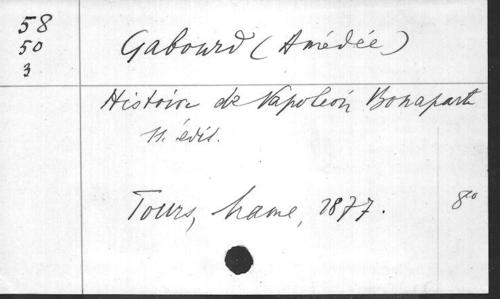 58
50
3
Gabourd (Amédée)
Histoire de Napoléon Bonaparte
11. édit.
Tours, Mame, 1877.
8º